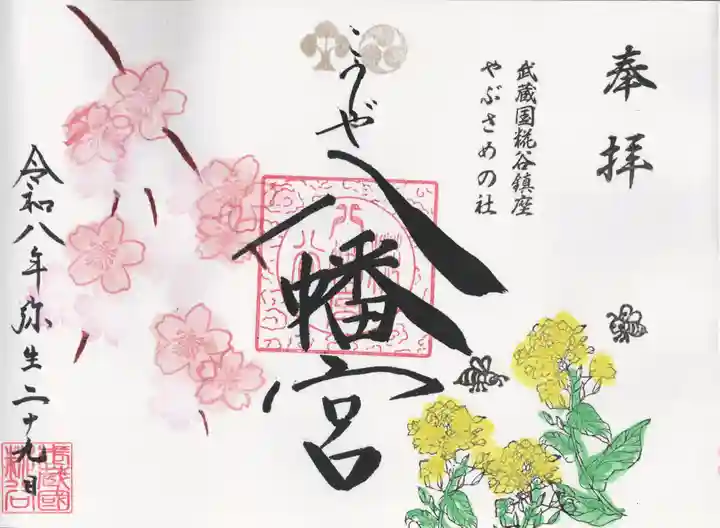 奉拝
武蔵国糀谷鎮座
やぶさめの社
こうじや
八幡宮
令和八年弥生二十九日
武蔵國